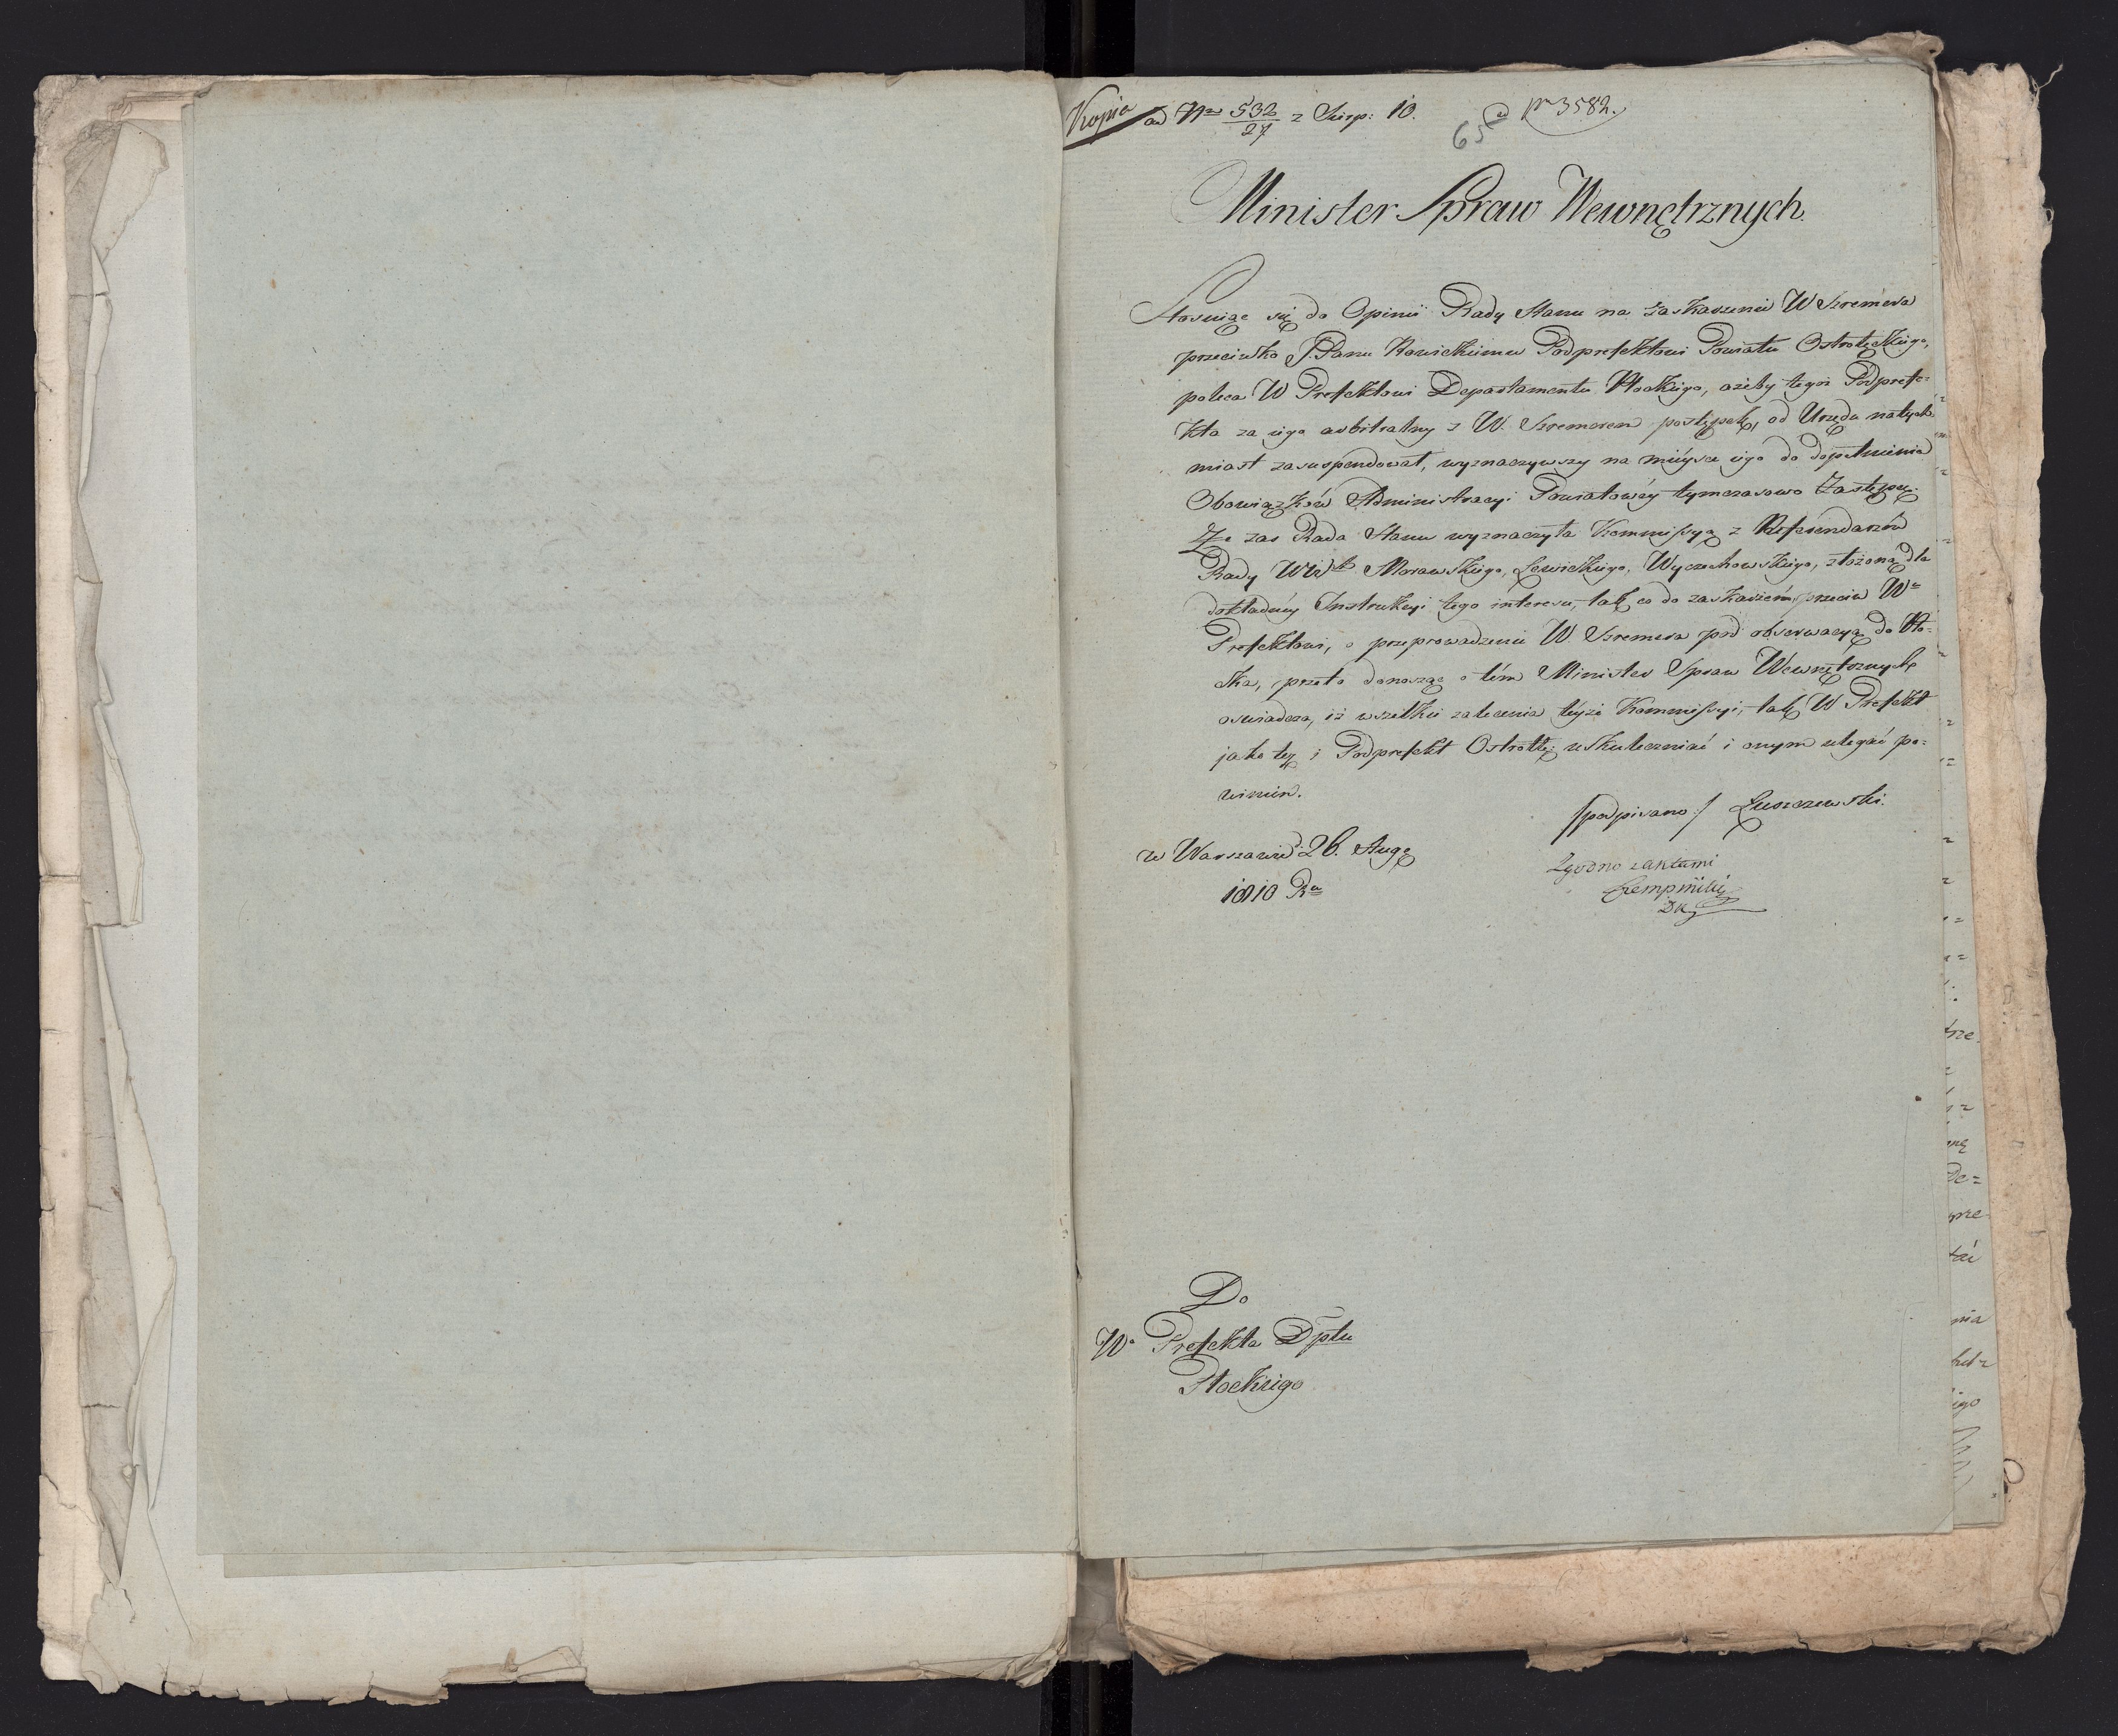 Kopia ad Nro 532/27 z Sierp: 10. ad pr 3582.
65
Minister Spraw Wewnętrznych.
Stosuiąc się do Opinii Rady Stanu na zaskarzenie W Szremera
przeciwko JPanu Rawickiemu Podprefektowi Powiatu Ostrołęckiego,
poleca W Prefektowi Departamentu Płockiego, ażeby tegoż Podprefe=
kta za iego arbitralny z W. Szremerem postępek, od Urzędu natych
miast zasuspendował, wyznaczywszy na mieysce iego do dopełnienia
Obowiązków Administracyi Powiatowéy tymczasowo Zastępcę.
Że zas Rada Stanu wyznaczyła Kommissyą z Referendarzów
Rady WW Morawskiego, Lewickiego, Wyczechowskiego, złożoną dla
dokładnéy Instrukcyi tego interesu, tak co do zaskarzeń przeciw Wu
Prefektowi, o przeprowadzenie W Szremera pod obserwacyą do Pło=
cka, przeto donosząc o tém Minister Spraw Wewnętrznych
oswiadcza, iż wszelkie zalecenia téyże Kommissyi, tak W Prefekt
jako też i Podprefekt Ostrołę: uskuteczniać i onym ulegać po=
winien.
/podpisano:/ Łuszczewski.
w Warszawie d 26. Aug
1810 Ru
Zgodno z aktami
Do
Wo Prefekta Dptu
Płockiego